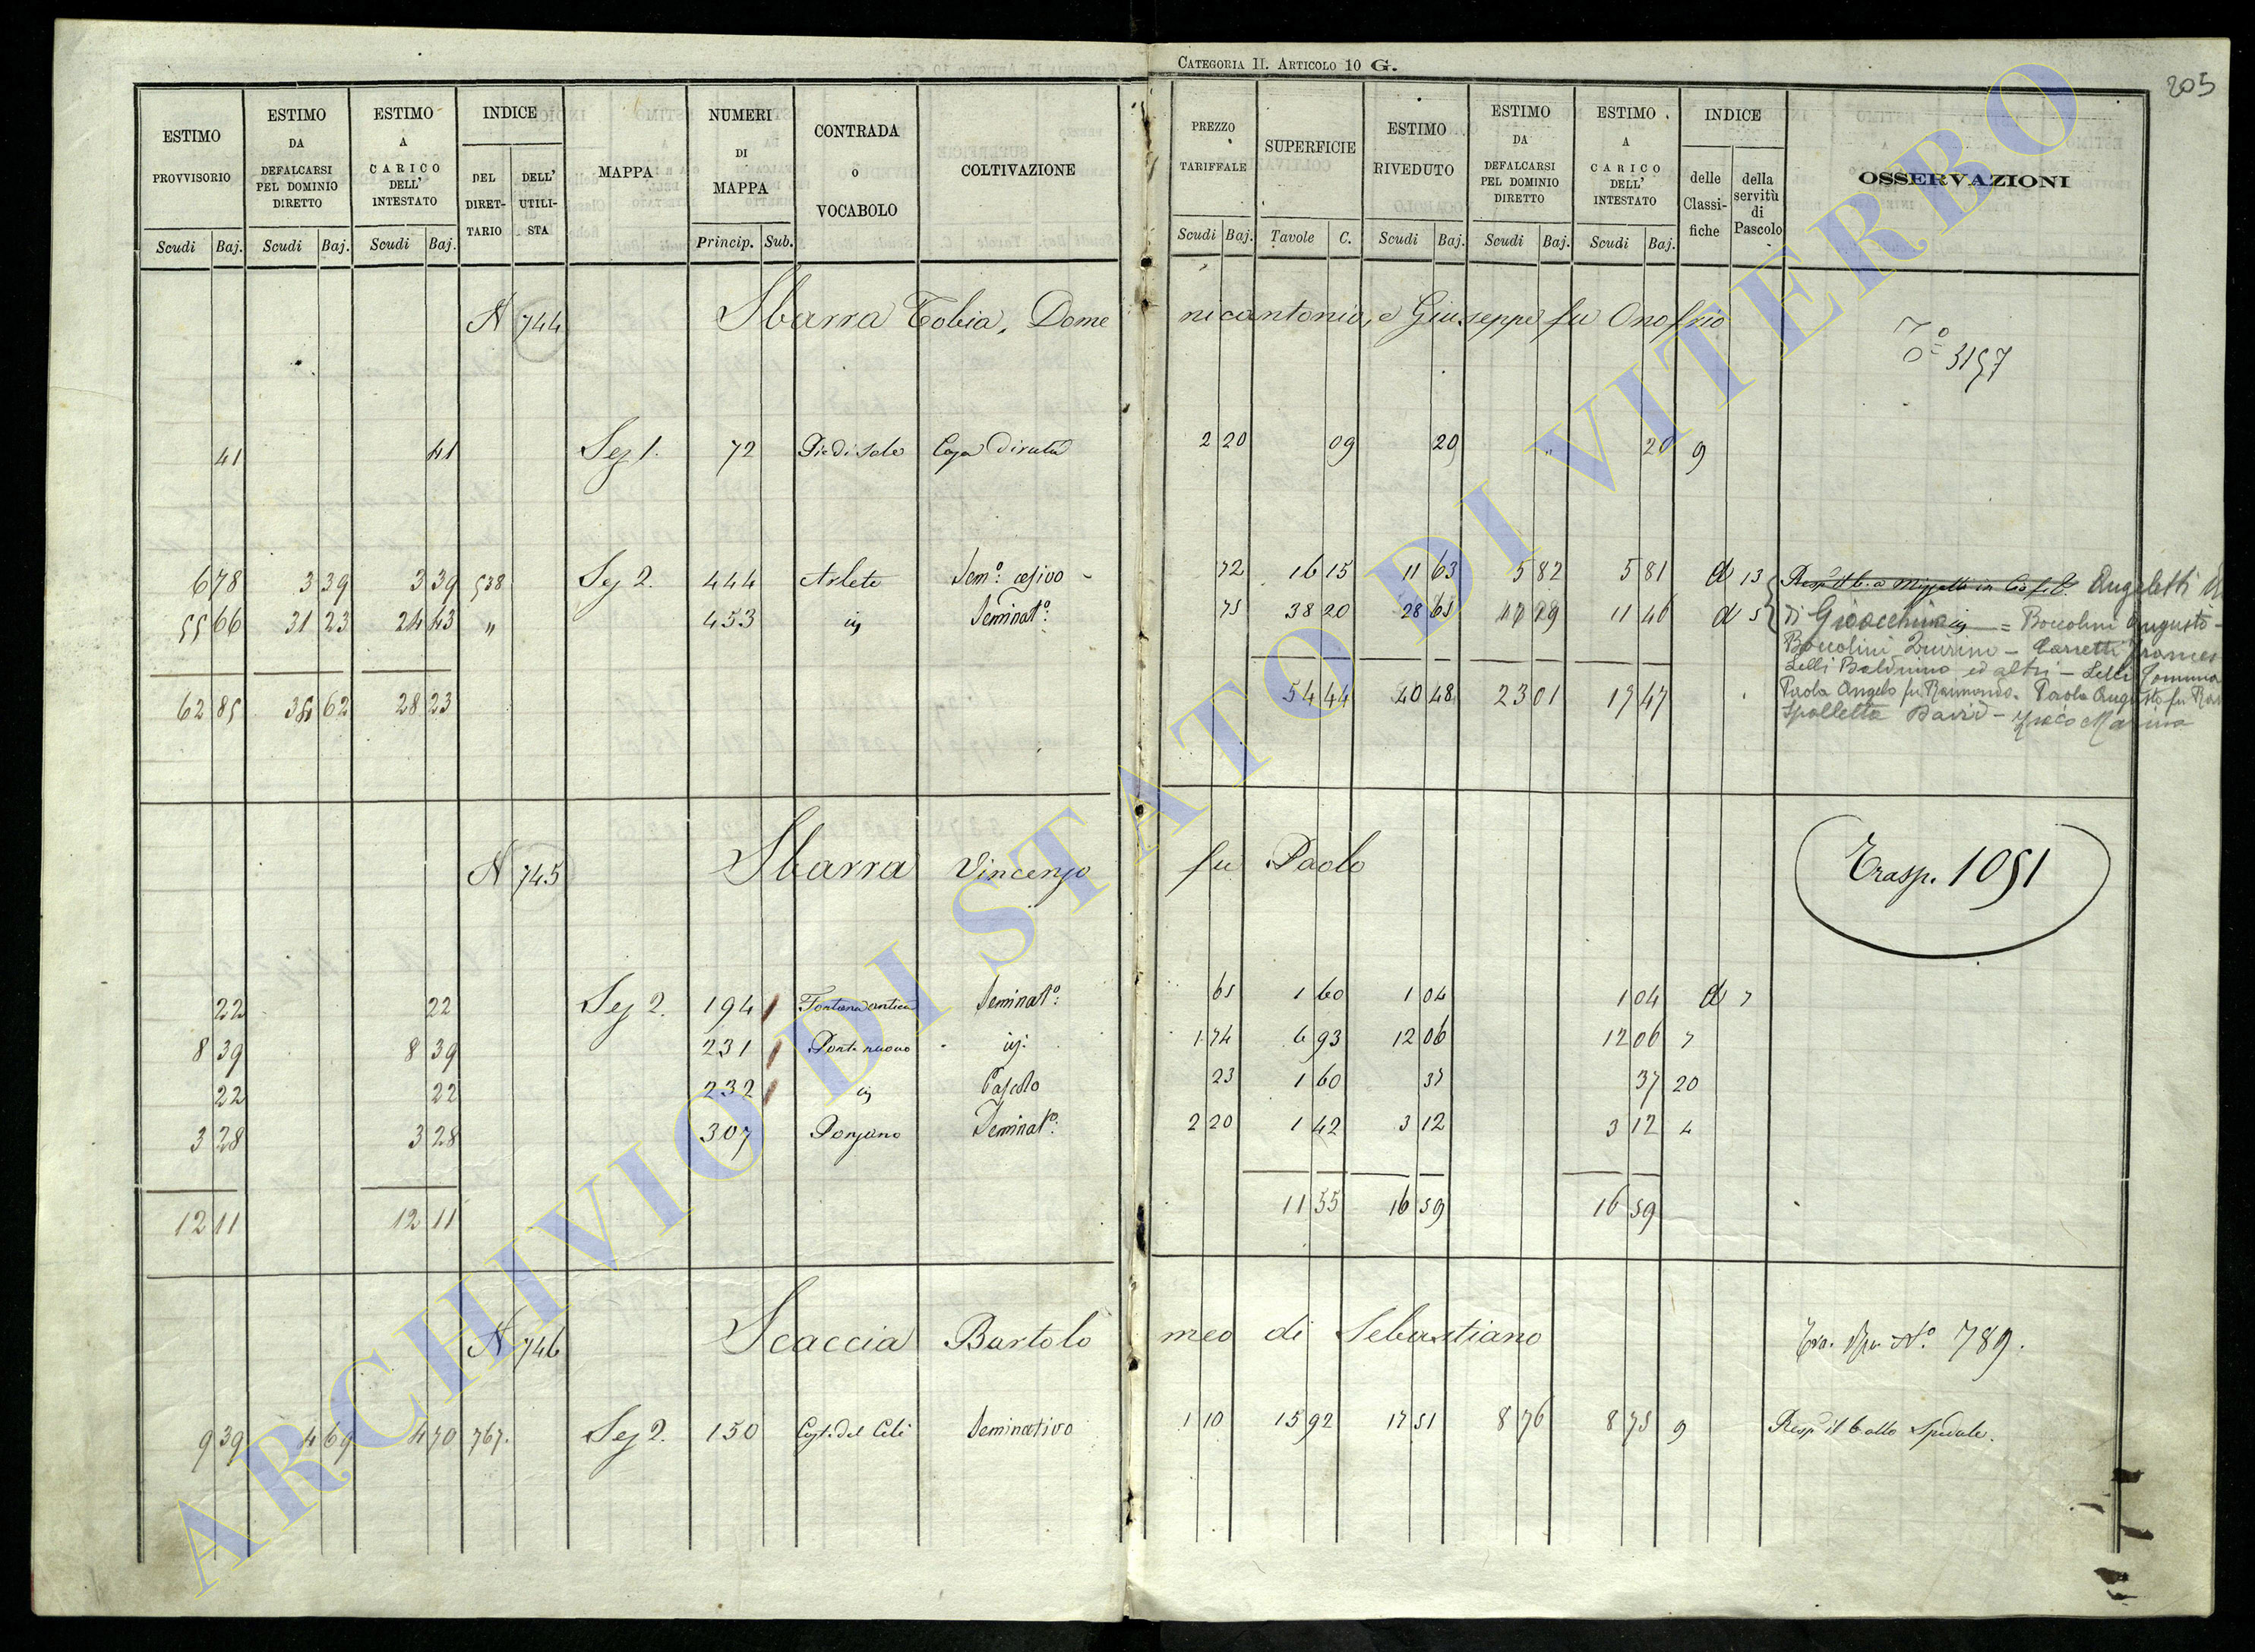 CATEGORIA II. ARTICOLO 10 G.
205
ESTIMO PROVVISORIO Scudi Baj.
ESTIMO DA DEFALCARSI PEL DOMINIO DIRETTO Scudi Baj.
ESTIMO A CARICO DELL' INTESTATO Scudi Baj.
INDICE DEL DIRET-TARIO DELL' UTILI-STA
MAPPA
NUMERI DI MAPPA Princip. Sub.
CONTRADA o VOCABOLO
COLTIVAZIONE
PREZZO TARIFFALE Scudi Baj.
SUPERFICIE Tavole C.
ESTIMO RIVEDUTO Scudi Baj.
ESTIMO DA DEFALCARSI PEL DOMINIO DIRETTO Scudi Baj.
ESTIMO A CARICO DELL' INTESTATO Scudi Baj.
INDICE delle Classi-fiche della servitù di Pascolo
OSSERVAZIONI
N 744 Sbarra Tobia, Domenicantonio, e Giuseppe fu Onofrio
3157
41 41 Sez 1. 72 Piedisole Casa diruta 2 20 09 20 " 20 9
6 78 3 39 3 39 538 Sez 2. 444 Arlete Sem.o cesivo 72 16 15 11 63 5 82 5 81 d 13 Angeletti
55 66 31 23 24 43 " 453 ivi Seminat.o: 75 38 20 28 65 17 19 11 46 d 5 di Gioacchino = Boccolini Augusto -
Boccolini Quirino -
Lelli Balduino ed altri - Lelli
62 85 34 62 28 23 54 44 40 48 23 01 17 47 Paola Angelo fu Raimondo. Paola Augusto fu
Spalletta David - Marina
N 745 Sbarra Vincenzo fu Paolo
Trasp. 1051
22 22 Sez 2. 194 Fontana antica Seminat.o: 65 1 60 1 04 1 04 d 7
8 39 8 39 231 Ponte nuovo ivi 1 74 6 93 12 06 12 06 7
22 22 232 ivi Pascolo 23 1 60 37 37 20
3 28 3 28 307 Ponzano Seminat.o: 2 20 1 42 3 12 3 12 4
12 11 12 11 11 55 16 59 16 59
N 746 Scaccia Bartolomeo di Sebastiano
N.o 789.
9 39 4 69 4 70 767. Sez 2. 150 Cost. del Celi Seminativo 1 10 15 92 17 51 8 76 8 75 9 Resp. il 6 allo Spedale.
ARCHIVIO DI STATO DI VITERBO